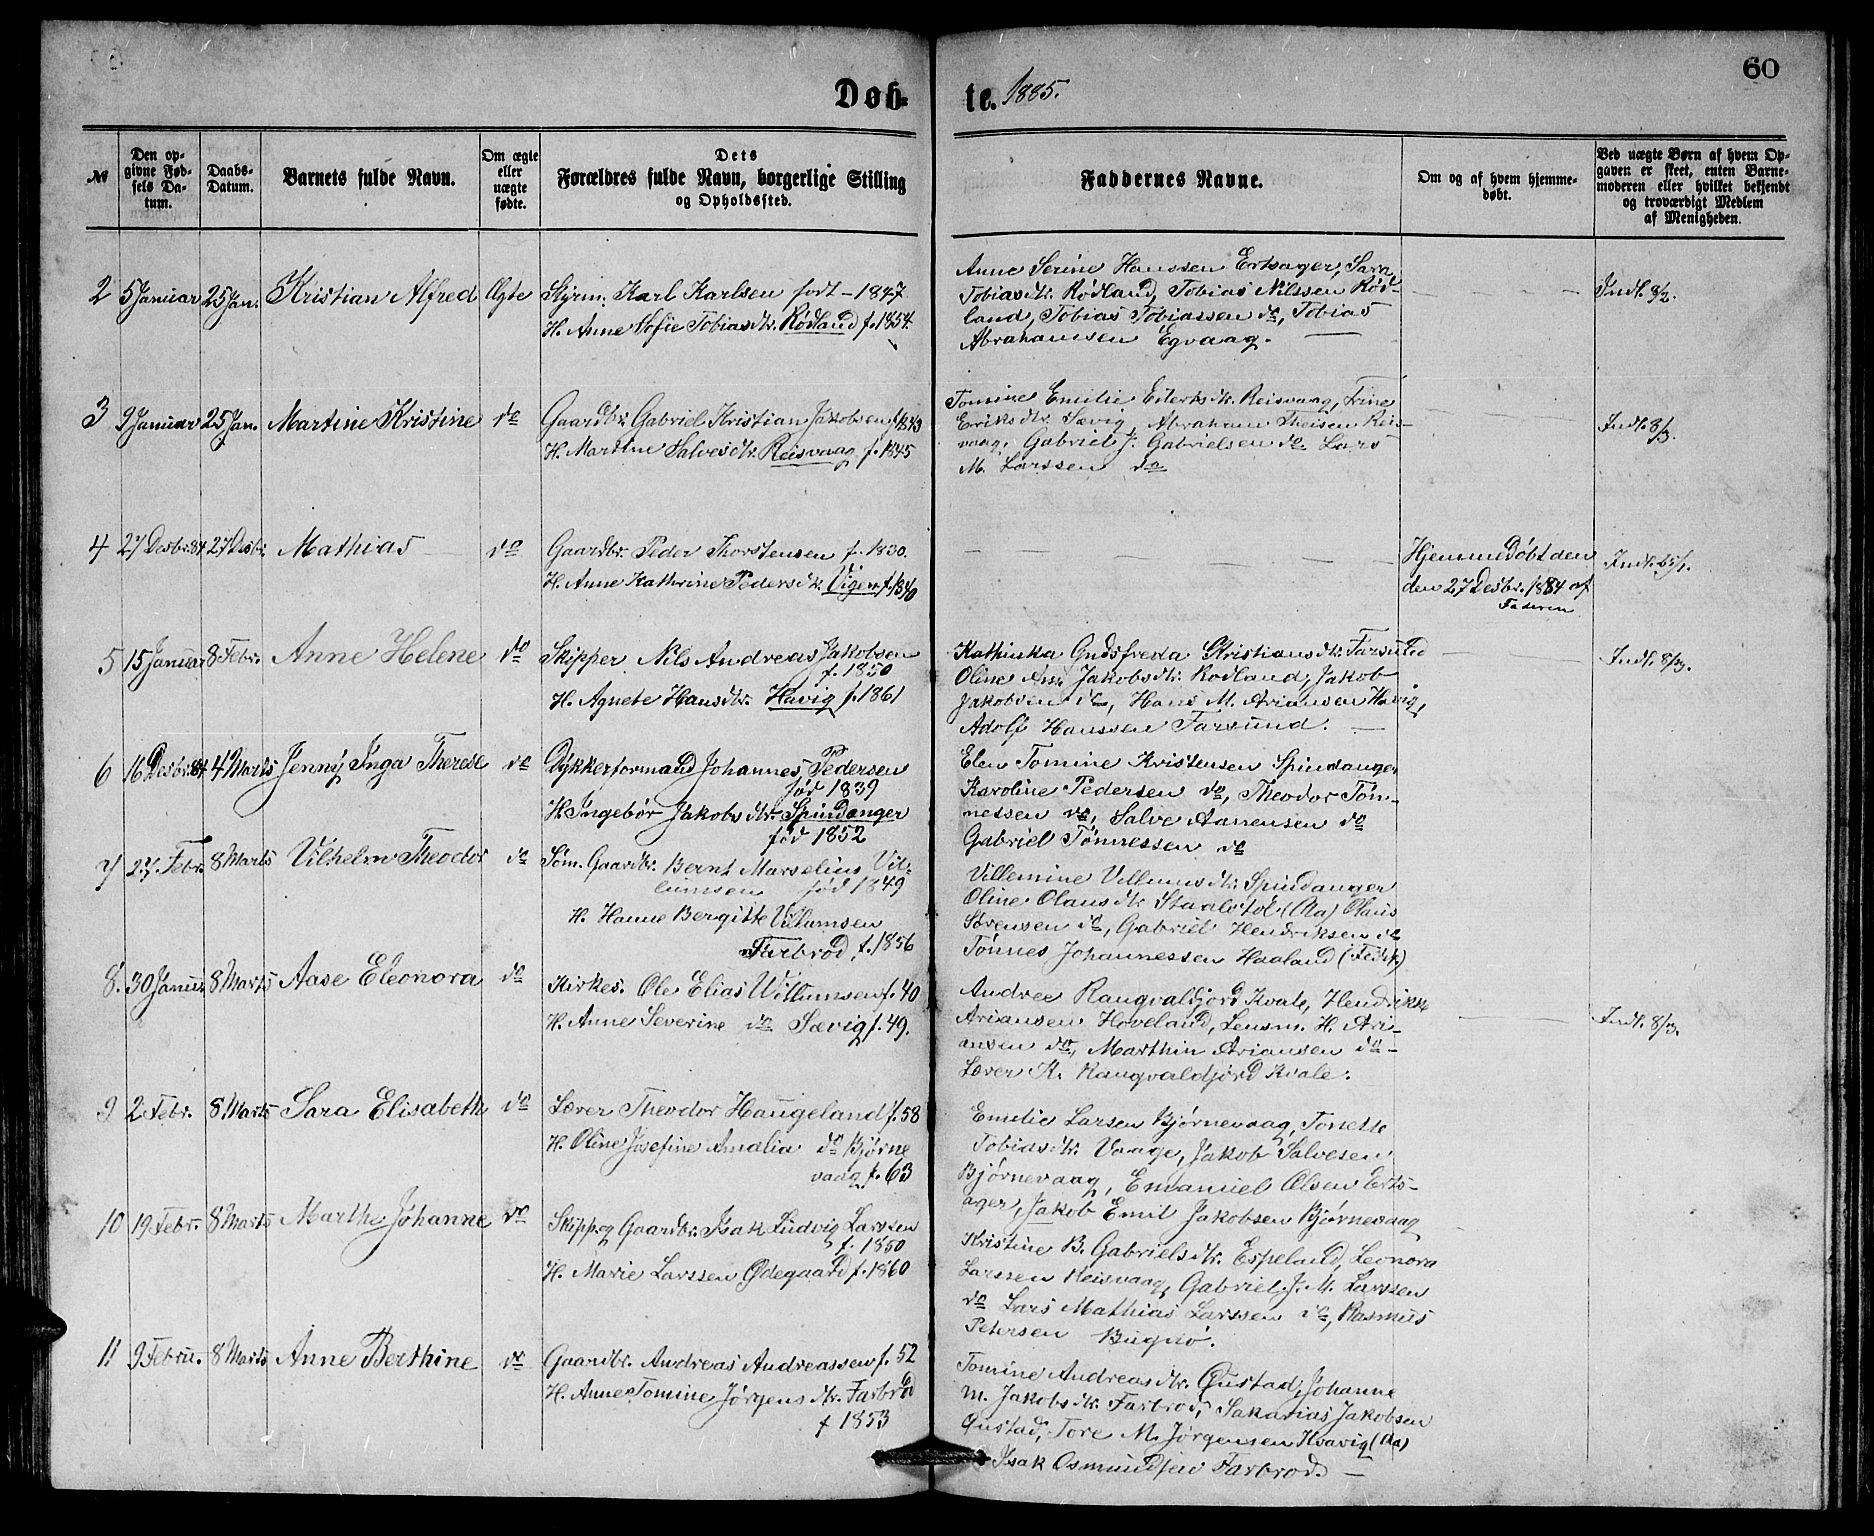 60
Døb-te. 1885.
№
Den op-
givne Fød-
sels Da-
tum.
Daabs-
Datum.
Barnets fulde Navn.
Om ægte
eller
uægte
fødte.
Dets
Forældres fulde Navn, borgerlige Stilling
og Opholdssted.
Faddernes Navne.
Om og af hvem hjemme-
døbt.
Ved uægte Børn af hvem Op-
gaven er skeet, enten Barne-
moderen eller hvilket bekjendt
og troværdigt Medlem
af Menigheden.
2 5 Januar 25 Jan. Kristian Alfred Ægte
Styrm. Karl Karlsen født 1847
H. Anne Sofie Tobiasdtr. Rødland f. 1854.
Anne Serine Hanssen Ertsager, Sara
Tobiasdtr. Rødland, Tobias Nilssen Rød-
land, Tobias Tobiassen do, Tobias
Abrahamsen Egvaag.
Indf. 8/2.
3 9 Januar 25 Jan. Martine Kristine do
Gaardbr. Gabriel Kristian Jakobsen f. 1843
H. Martine Salvesdtr. Reisvaag f. 1845
Tomine Emilie Eilertsdtr. Reisvaag, Trine
Eriksdtr. Sævig, Abraham Theisen Reis-
vaag, Gabriel J. Gabrielsen do Lars
M. Larssen do
Indf. 8/3.
4 27 Desbr. 84 27 Desbr. Mathias do
Gaardbr. Peder Thorstensen f. 1830.
H. Anne Kathrine Pedersdtr. Vigen f. 1840
Hjemmedøbt den
den 27 Desbr. 1884 af
Faderen
Indf. 25/1.
5 15 Januar 8 Febr. Anne Helene do
Skipper Nils Andreas Jakobsen
f. 1850
H. Agnete Hansdtr. Havig f. 1861
Kathinka Gudsfreda Kristiansdtr. Farsund
Oline Am. Jakobsdtr. Rødland, Jakob
Jakobsen do, Hans M. Ariansen Havig,
Adolf Hanssen Farsund.
Indf. 8/3.
6 16 Desbr. 84 4 Marts Jenny Inga Therese do
Dykkerformand Johannes Pedersen
fød 1839
H. Ingebor Jakobsdtr. Spindanger
fød 1852
Elen Tomine Kristensen Spindanger
Karoline Pedersen do, Theodor Tøn-
nessen do, Salve Aanensen do
Gabriel Tønnessen do
7 27. Febr. 8 Marts Vilhelm Theodor do
Søm. Gaardbr. Bernt Marselius Vil-
lumsen fød 1849
H. Hanne Bergitte Villumsen
Farbrod, f. 1856
Villemine Villumsdtr. Spindanger
Oline Olausdtr. Staalstøl (Aa) Olaus
Sørensen do, Gabriel Hendriksen do
Tønnes Johannessen Haaland (Feda)
8. 30 Januar 8 Marts Aase Eleonora do
Kirkes. Ole Elias Willumsen f. 40
H. Anne Severine do Sævig f. 49.
Andree Rangvaldfjord Kvale, Hendrikke
Ariansen Hoveland, Lensm. H. Ari-
ansen do, Marthin Ariansen do
Lærer K. Rangvaldfjord Kvale.
Indf. 8/3.
9 2 Febr. 8 Marts Sara Elisabeth do
Lærer Theodor Haugeland f. 58
H. Oline Josefine Amalia do Bjørne
vaag f. 63
Emelie Larsen Bjørnevaag, Tonette
Tobiasdtr. Vaage, Jakob Salvesen
Bjørnevaag, Emanuel Olsen Erts-
ager, Jakob Emil Jakobsen Bjørnevaag
10 19 Febr. 8 Marts Marthe Johanne do
Skip. og Gaardbr. Isak Ludvig Larssen
f. 1850
H. Marie Larssen Ødegaard f. 1860
Kristine B. Gabrielsdtr. Espeland, Leonora
Larssen Reisvaag, Gabriel J. M. Larssen
do Lars Mathias Larssen do, Rasmus
Petersen Bugnø.
11 9 Febru. 8 Marts Anne Berthine do
Gaardbr. Andreas Andreassen f. 52
H. Anne Tomine Jørgensdtr. Farbrod
f 1853
Tomine Andreasdtr. Øustad, Johanne
M. Jakobsdtr. Farbrod, Sakarias Jakobsen
Øustad, Tore M. Jørgensen Kvavig (Aa)
Isak Osmundsen Farbrod.